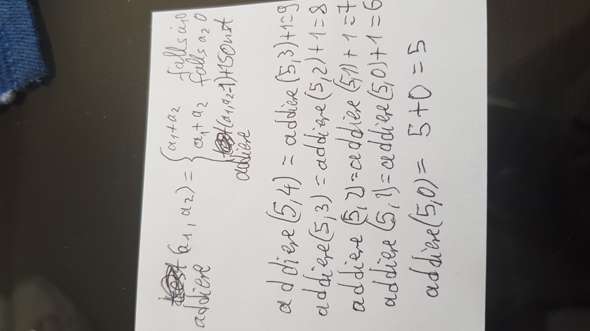 addiere (a1, a2) = { a1+a2 falls
a1+a2 falls a2 0
addiere (a1, a2-1)+1 sonst
addiere(5,4) = addiere(5,3)+1=9
addiere(5,3) = addiere(5,2)+1=8
addiere(5,2) = addiere(5,1)+1=7
addiere(5,1) = addiere(5,0)+1=6
addiere(5,0) = 5+0=5